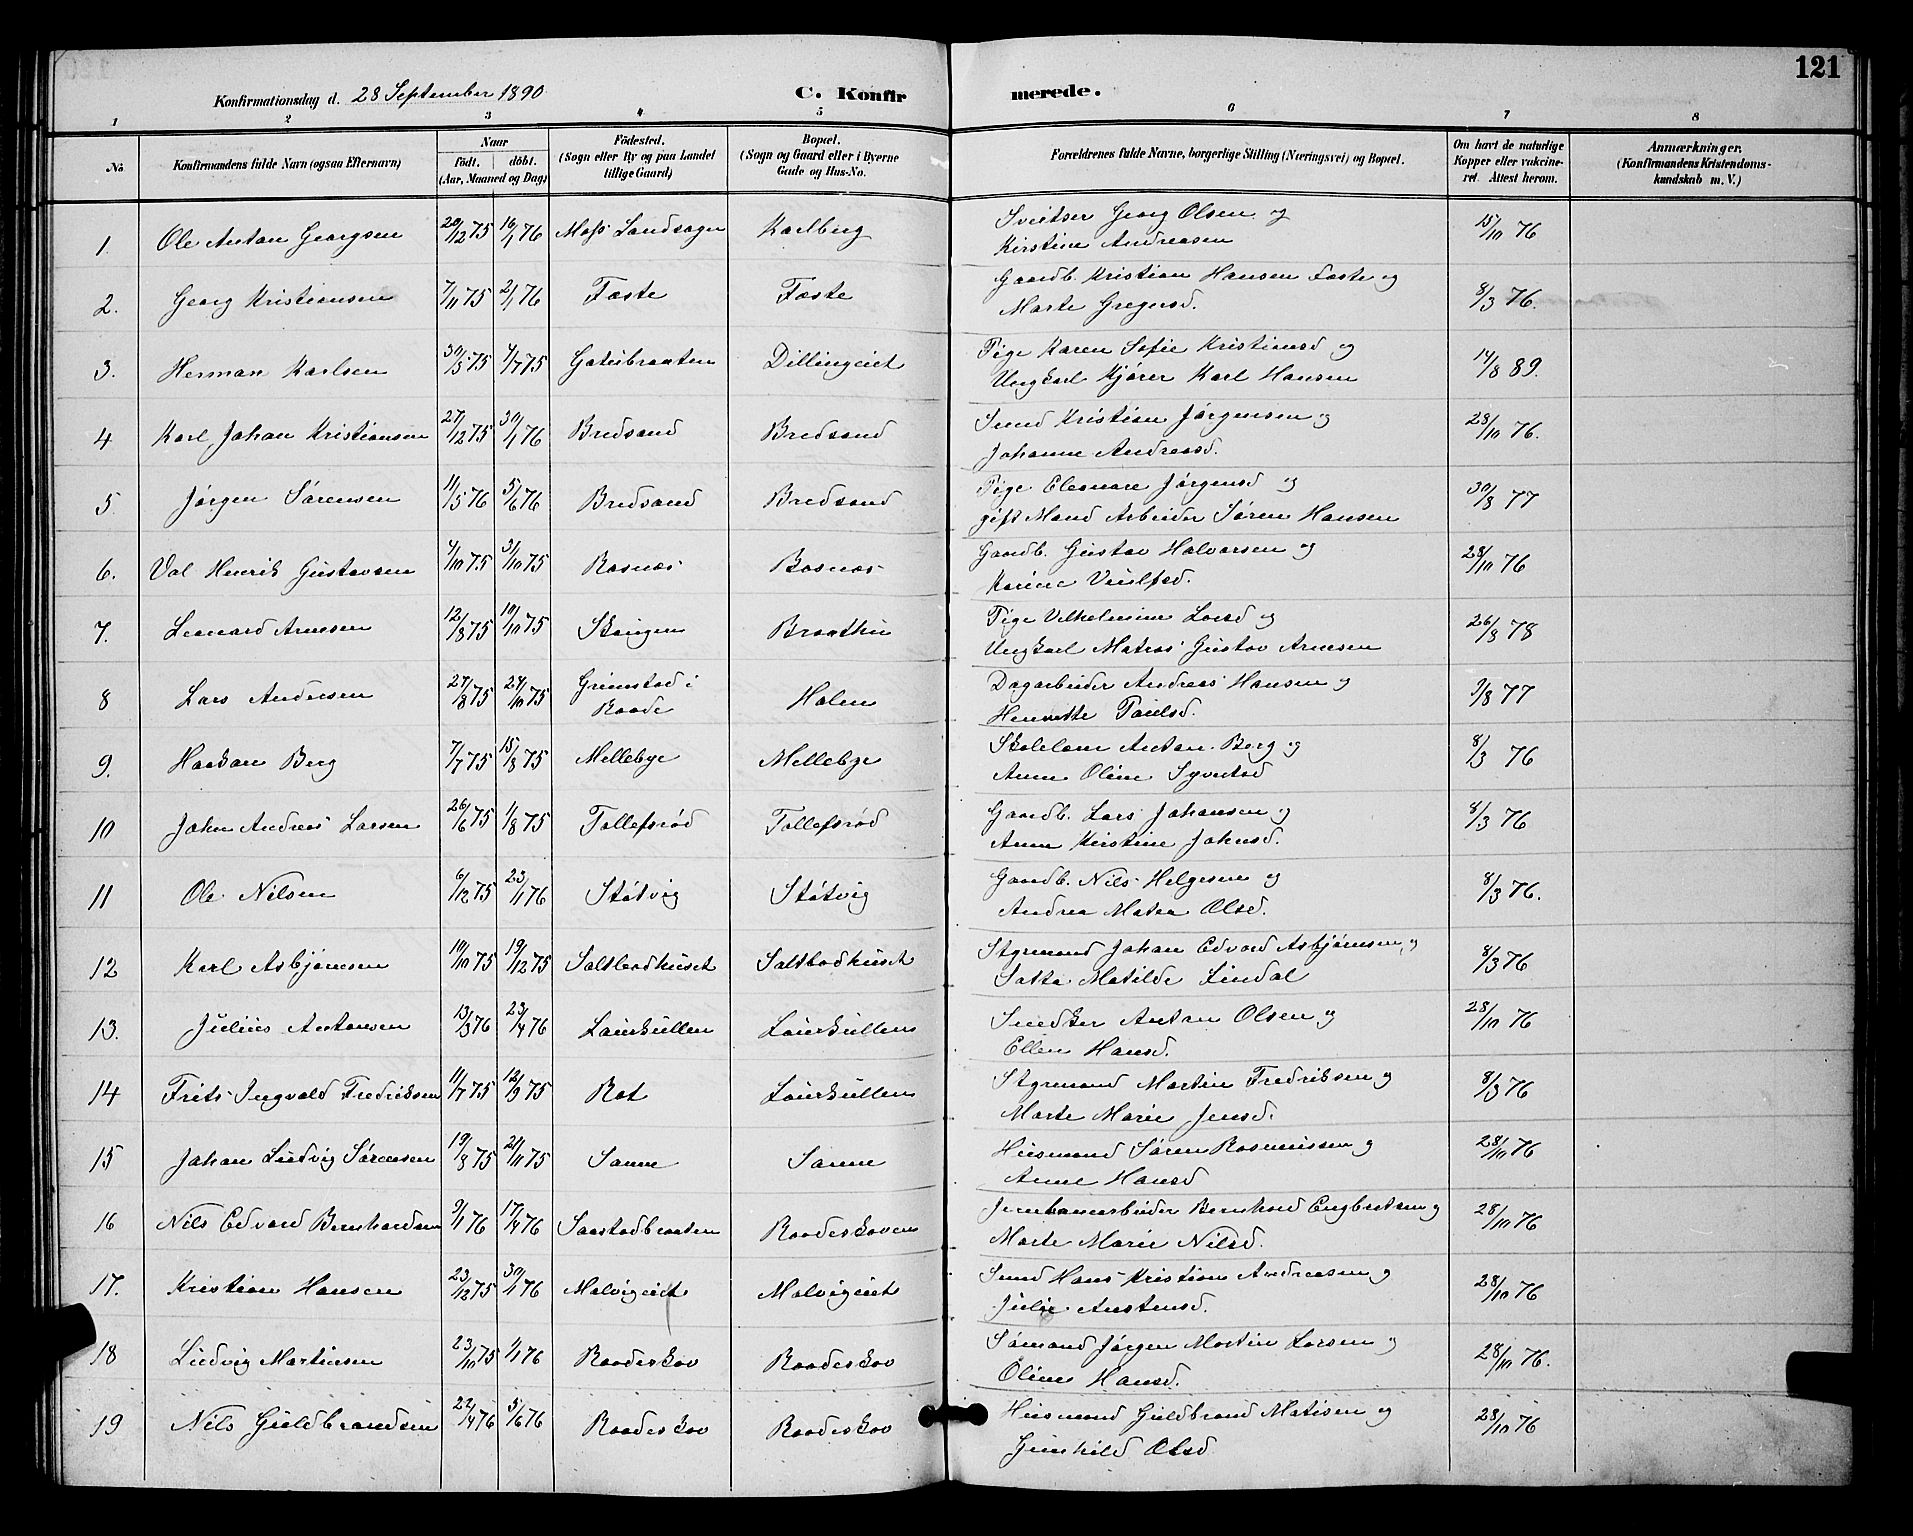 121
Konfirmationsdag d. 28 September 1890 C. Konfirmerede.
1 2 3 4 5 6 7 8
No Konfirmandens fulde Navn (ogsaa Efternavn) Naar födt. döbt. (Aar, Maaned og Dag) Födested. (Sogn eller By og paa Landet tillige Gaard) Bopæl. (Sogn og Gaard eller i Byerne Gade og Hus-No. Forældrenes fulde Navne, borgerlige Stilling (Næringsvei) og Bopæl. Om havt de naturlige Kopper eller vakcineret. Attest herom. Anmærkninger. (Konfirmandens Kristendomskundskab m. V.)
1. Ole Anton Georgsen 20/12 75 16/1 76 Moss Landsogn Karlberg Sveitser Georg Olsen og 15/10 76
Kirstine Andreasen
2. Georg Kristiansen 7/11 75 2/1 76 Faste Faste Gaardb. Kristian Hansen Faste og 8/3 76.
Marte Gregersd.
3. Herman Karlsen 30/5 75 4/7 75 Gatubraaten Dillingeiet Pige Karen Sofie Kristiansd og 14/8 89.
Ungkarl Kjører Karl Hansen
4 Karl Johan Kristiansen 27/12 75 30/1 76 Bredsand Bredsand Smed Kristian Jørgensen og 28/10 76.
Johanne Andreasd.
5. Jørgen Sørensen 11/5 76 5/6 76 Bredsand Bredsand Pige Eleonore Jørgensd og 30/8 77
gift Mand Arbeider Søren Hansen
6. Val Henrik Gustavsen 4/10 75 31/10 75 Rosnæs Rosnæs Gaardb. Gustav Halvorsen og 28/10 76
Karine
7. Leonard Arnesen 12/8 75 10/10 75 Skougen Braathu Pige Vilhelmine Larsd og 26/8 78
Ungkarl Matros Gustav Arnesen
8 Lars Andresen 27/8 75 24/10 75 Grimstad i Raade Holen Dagarbeider Andreas Hansen og 9/8 77
Henrette Paulsd.
9. Haakon Berg 7/7 75 15/8 75 Mellebye Mellebye Skolelær Anton Berg og 8/3 76
Anne Oline Syvertsd
10 John Andreas Larsen 26/6 75 1/8 75 Tollefsrød Tollefsrød Gaardb. Lars Johansen og 8/3 76
Anne Kirstine Johnsd.
11 Ole Nilsen 6/12 75 23/1 76 Støtvig Støtvig Gaardb. Nils Helgesen og 8/3 76.
Andrea Matea Olsd.
12 Karl Asbjørnsen 10/10 75 19/12 75 Saltbodhuset Saltbodhuset Styrmand Johan Edvard Asbjørnsen og 8/3 76
Matilde Lindal
13. Julius Antonsen 13/3 76 23/4 76 Laurkullen Laurkullen Snedker Anton Olsen og 28/10 76
Ellen Hansd.
14 Frits Ingvald Fredriksen 11/7 75 12/9 75 Rot Laurkullen Styrmand Martin Fredriksen og 8/3 76
Marte Marie Jensd.
15 Johan Ludvig Sørensen 19/8 75 21/11 75 Sanne Sanne Husmand Søren Rasmussen og 28/10 76
Anne Hansd
16 Nils Edvard Bernhardsen 9/1 76 17/4 76 Saastadbraaten Raadeskoven Jernbanearbeider Bernhard Engbretsen og 28/10 76
Marte Marie Nilsd.
17. Kristian Hansen 23/12 75 30/1 76 Malvigeiet Malvigeiet Smed Hans Kristian Andreasen og 28/10 76
Julie Anstensd.
18 Ludvig Martinsen 23/10 75 1/1 76 Raadeskov Raadeskov Sømand Jørgen Martin Larsen og 28/10 76.
Oline Hansd.
19 Nils Guldbrandsen 22/4 76 5/6 76 Raadeskov Raadeskov Husmand Guldbrand Matisen og 28/10 76
Gunhild Olsd